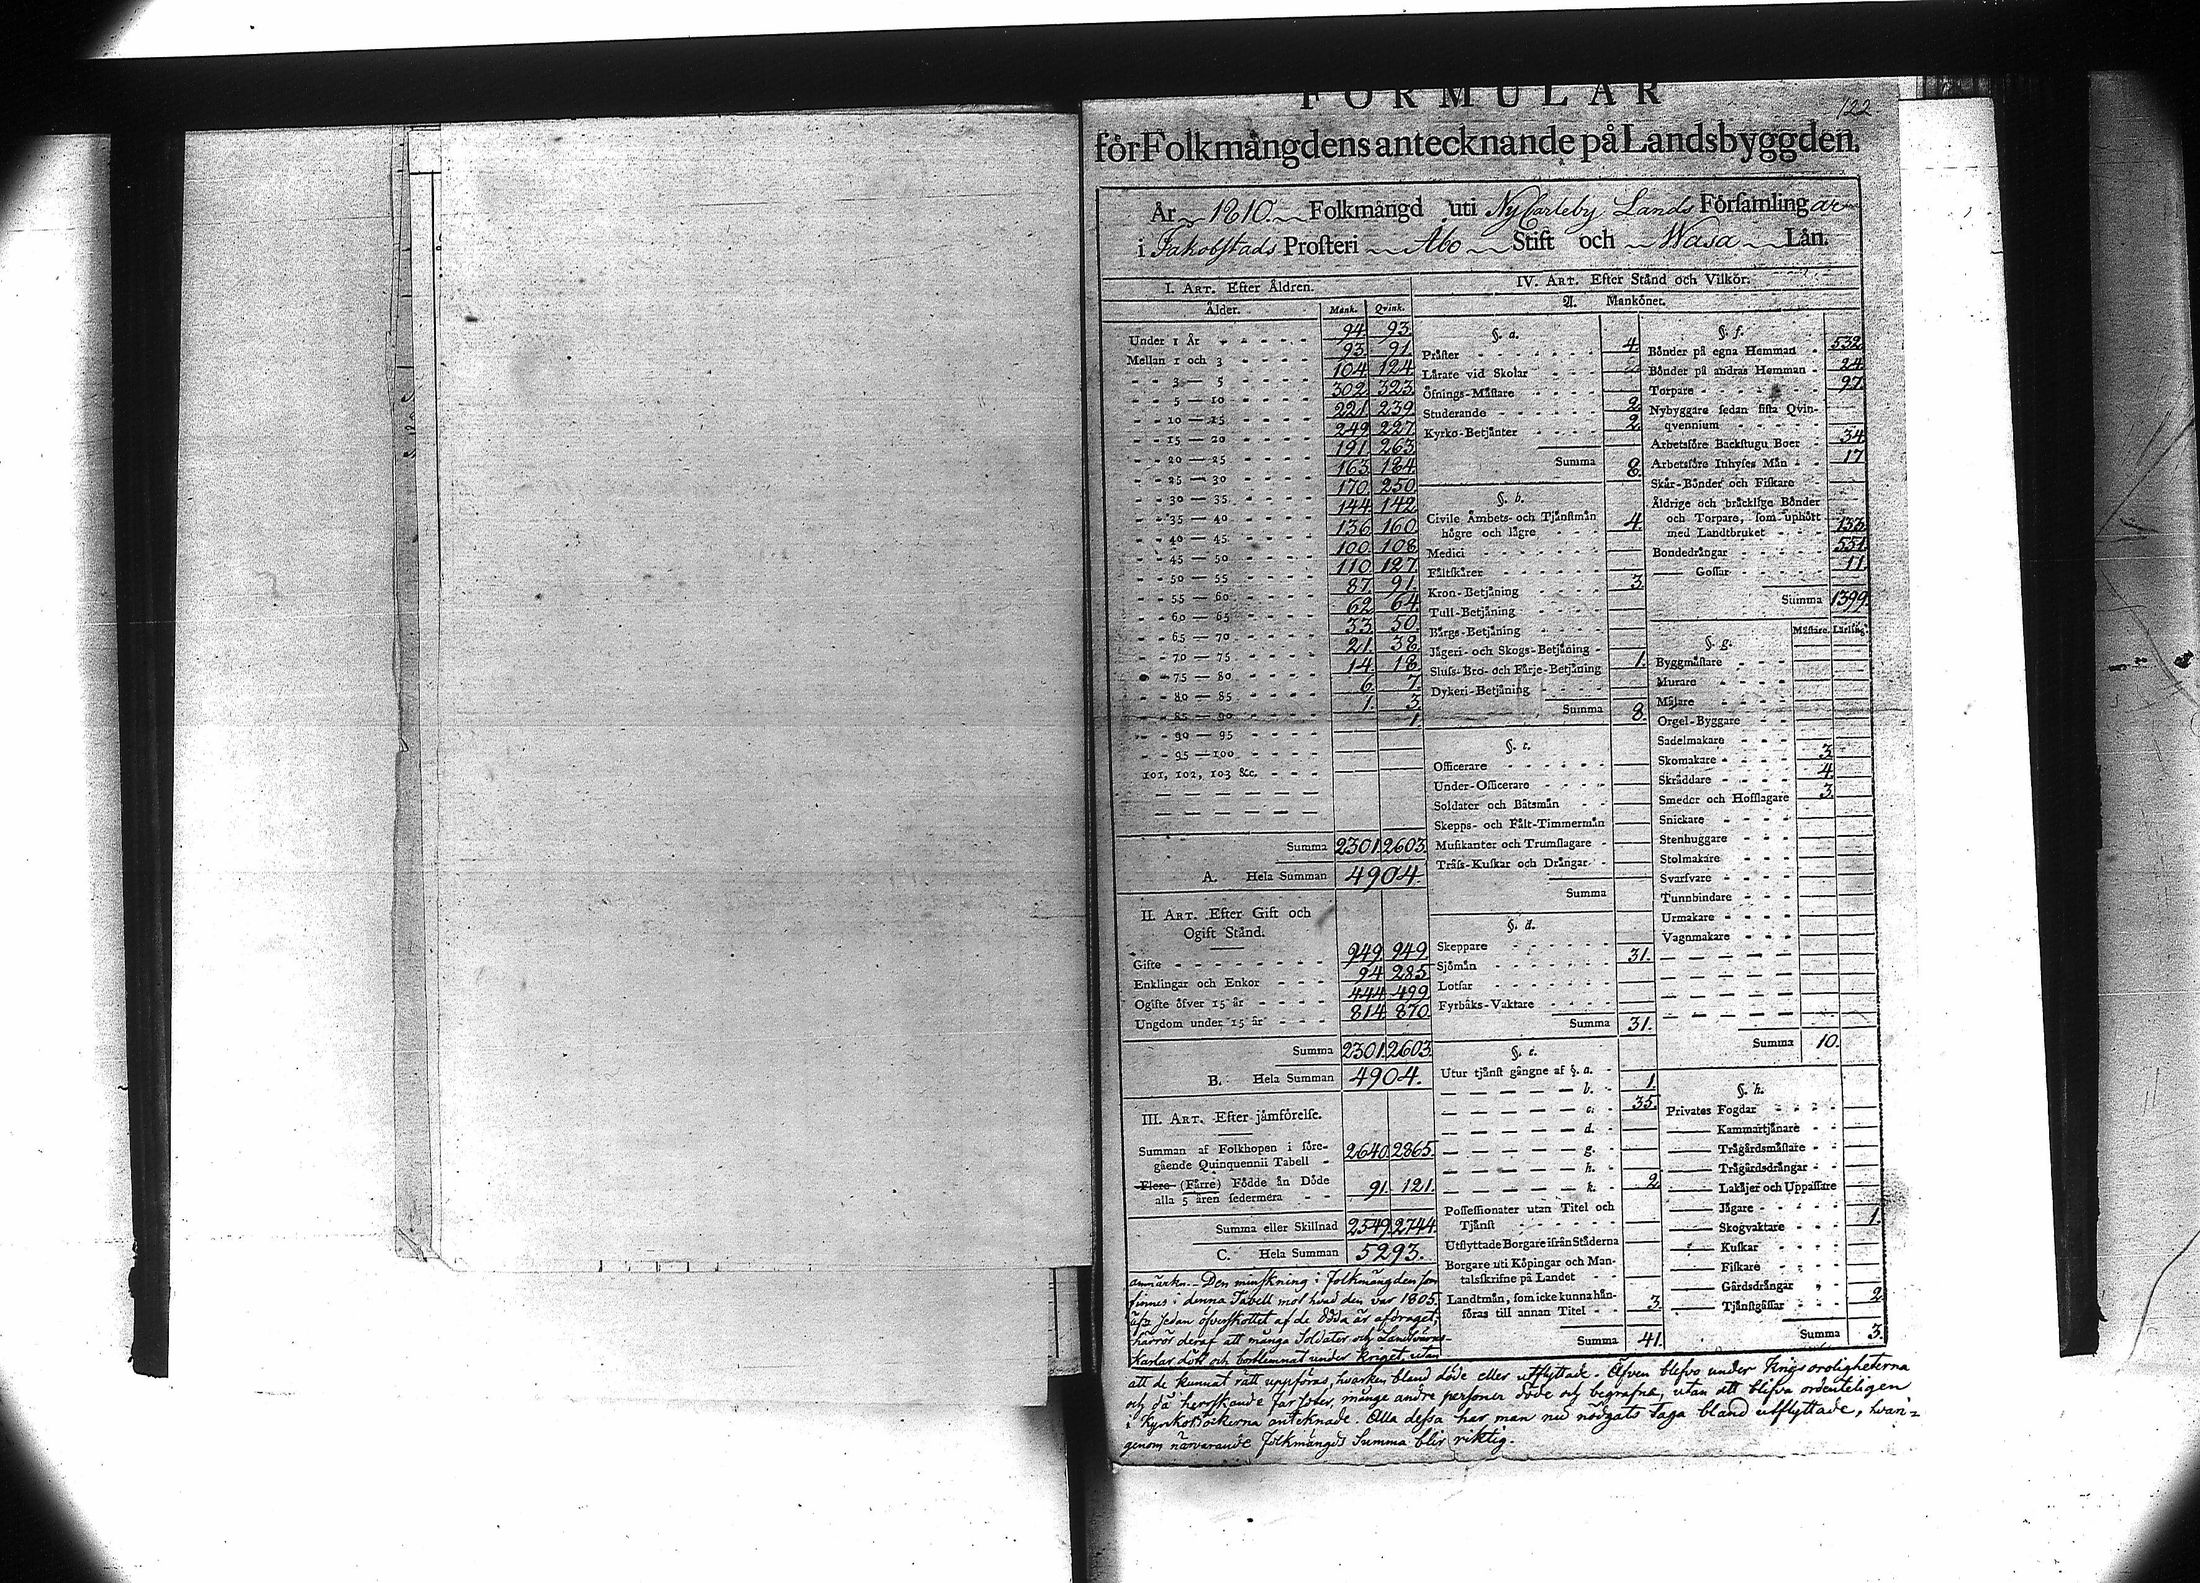 FORMULÄR
122
för Folkmängdens antecknande på Landsbyggden.
År 1810. Folkmängd uti NyCarleby Lands Församlingar
i Jakobstads Prosteri Åbo Stift och Wasa Län.
I. ART. Efter Åldren.
Ålder. Mank. Qvink.
Under 1 År 94. 93.
Mellan 1 och 3 93. 91.
3 — 5 104. 124.
5 — 10 302. 323.
10 — 15 221. 239.
15 — 20 249. 227.
20 — 25 191. 263.
25 — 30 163. 184.
30 — 35 170. 250.
35 — 40 144. 142.
40 — 45 136. 160.
45 — 50 100. 108.
50 — 55 110. 127.
55 — 60 87. 91.
60 — 65 62. 64.
65 — 70 33. 50.
70 — 75 21. 38.
75 — 80 14. 18.
80 — 85 6. 7.
85 — 90 1. 3.
90 — 95 1.
95 — 100
101, 102, 103 &c.
Summa 2301. 2603.
A. Hela Summan 4904.
II. ART. Efter Gift och
Ogift Stånd.
Gifte 949. 949.
Enklingar och Enkor 94. 285.
Ogifte öfver 15 år 444. 499.
Ungdom under 15 år 814. 870.
Summa 2301. 2603.
B. Hela Summan 4904.
III. ART. Efter jämförelse.
Summan af Folkhopen i före-
gående Quinquennii Tabell 2640. 2865.
Flere (Färre) Födde än Döde
alla 5 åren sedermera 91. 121.
Summa eller Skillnad 2549. 2744.
C. Hela Summan 5293.
IV. ART. Efter Stånd och Vilkor.
A. Mankönet.
§. a.
Präster 4.
Lärare vid Skolar
Öfnings-Mästare
Studerande 2.
Kyrko-Betjänter 2.
Summa 8.
§. b.
Civile Ämbets- och Tjänstmän
högre och lägre 4.
Medici
Fältskärer
Kron-Betjäning 3.
Tull-Betjäning
Bärgs-Betjäning
Jägeri- och Skogs-Betjäning
Sluss- Bro- och Färje-Betjäning 1.
Dykeri-Betjäning
Summa 8.
§. c.
Officerare
Under-Officerare
Soldater och Båtsmän
Skepps- och Fält-Timmermän
Musikanter och Trumslagare
Träss-Kuskar och Drängar
Summa
§. d.
Skeppare
Sjömän 31.
Lotsar
Fyrbåks-Vaktare
Summa 31.
§. e.
Utur tjänst gångne af §. a.
b. 1.
c. 35.
d.
g.
h.
k. 2.
Possessionater utan Titel och
Tjänst
Utflyttade Borgare ifrån Städerna
Borgare uti Köpingar och Man-
talsskrifne på Landet
Landtmän, som icke kunna hän-
föras till annan Titel 3.
Summa 41.
§. f.
Bönder på egna Hemman 532.
Bönder på andras Hemman 24.
Torpare 97.
Nybyggare sedan sista Qvin-
qvennium
Arbetsföre Backstugu Boer 34.
Arbetsföre Inhyses Män 17
Skär-Bönder och Fiskare
Äldrige och bräcklige Bönder
och Torpare, som uphört
med Landtbruket 133.
Bondedrängar 551.
Gossar 11.
Summa 1399.
Mästare. Lärling.
§. g.
Byggmästare
Murare
Målare
Orgel-Byggare
Sadelmakare
Skomakare 3.
Skräddare 4.
Smeder och Hofslagare 3.
Snickare
Stenhuggare
Stolmakare
Svarfvare
Tunnbindare
Urmakare
Vagnmakare
Summa 10.
§. h.
Privates Fogdar
Kammartjänare
Trägårdsmästare
Trägårdsdrängar
Lakäjer och Uppassare
Jägare
Skogvaktare 1.
Kuskar
Fiskare
Gårdsdrängar
Tjänstgässar 2.
Summa 3.
anmärkn. - Den minskning i Folkmängden som
finnes i denna Tabell mot hvad den var 1805,
sedan öfverskottet af de döda är afdraget,
härrör deraf att många Soldater och Landtvärns-
Karlar dött och bortkommit under Kriget, utan
att de kunnat rätt uppföras, hvarken bland döde eller utflyttade. Äfven blefvo under Krigs oroligheterna
och då herrskande Farsoter, många andre personer döde och begrafne, utan att blifva ordenteligen
i Kyrkoböckerna antecknade. Alla dessa har man nu nödgats taga bland utflyttade, hvari=
genom närvarande Folkmängds Summa blir riktig.